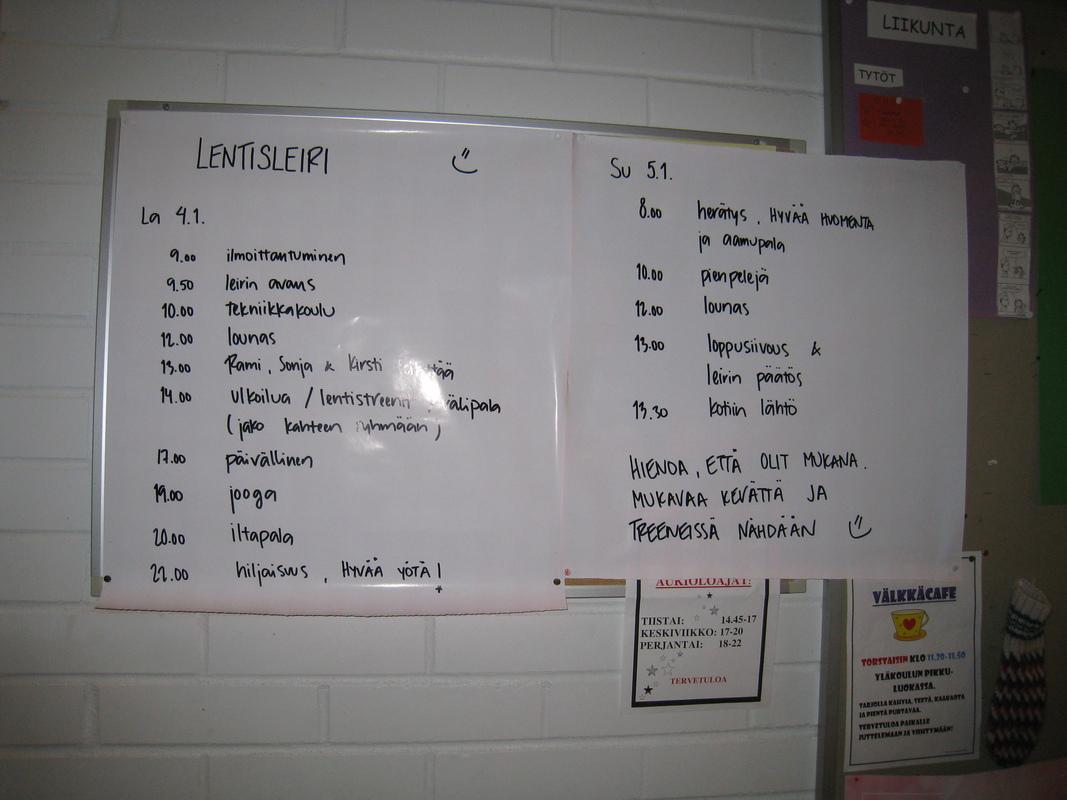 LENTISLEIRI
La 4.1.
9.00 ilmoittautuminen
9.50 leirin avaus
10.00 tekniikkakoulu
12.00 lounas
13.00 Rami, Sonja & Kirsti
14.00 ulkoilua / lentistreenit välipala
(jako kahteen ryhmään)
17.00 päivällinen
19.00 jooga
20.00 iltapala
22.00 hiljaisuus, HYVÄÄ YÖTÄ!
Su 5.1.
8.00 herätys, HYVÄÄ HUOMENTA
ja aamupala
10.00 pienpelejä
12.00 lounas
13.00 loppusiivous &
leirin päätös
13.30 kotiin lähtö
HIENOA, ETTÄ OLIT MUKANA.
MUKAVAA KEVÄTTÄ JA
TREENEISSÄ NÄHDÄÄN
LIIKUNTA
TYTÖT
AUKIOLOAJAT:
TIISTAI: 14.45-17
KESKIVIIKKO: 17-20
PERJANTAI: 18-22
TERVETULOA
VÄLKKÄCAFE
TORSTAISIN KLO 11.20-11.50
YLÄKOULUN PIKKU-
LUOKASSA.
TARJOLLA KAHVIA, TEETÄ, KAAKAOTA
JA PIENTÄ PURTAVAA.
TERVETULOA PAIKALLE
JUTTELEMAAN JA VIIHTYMÄÄN!